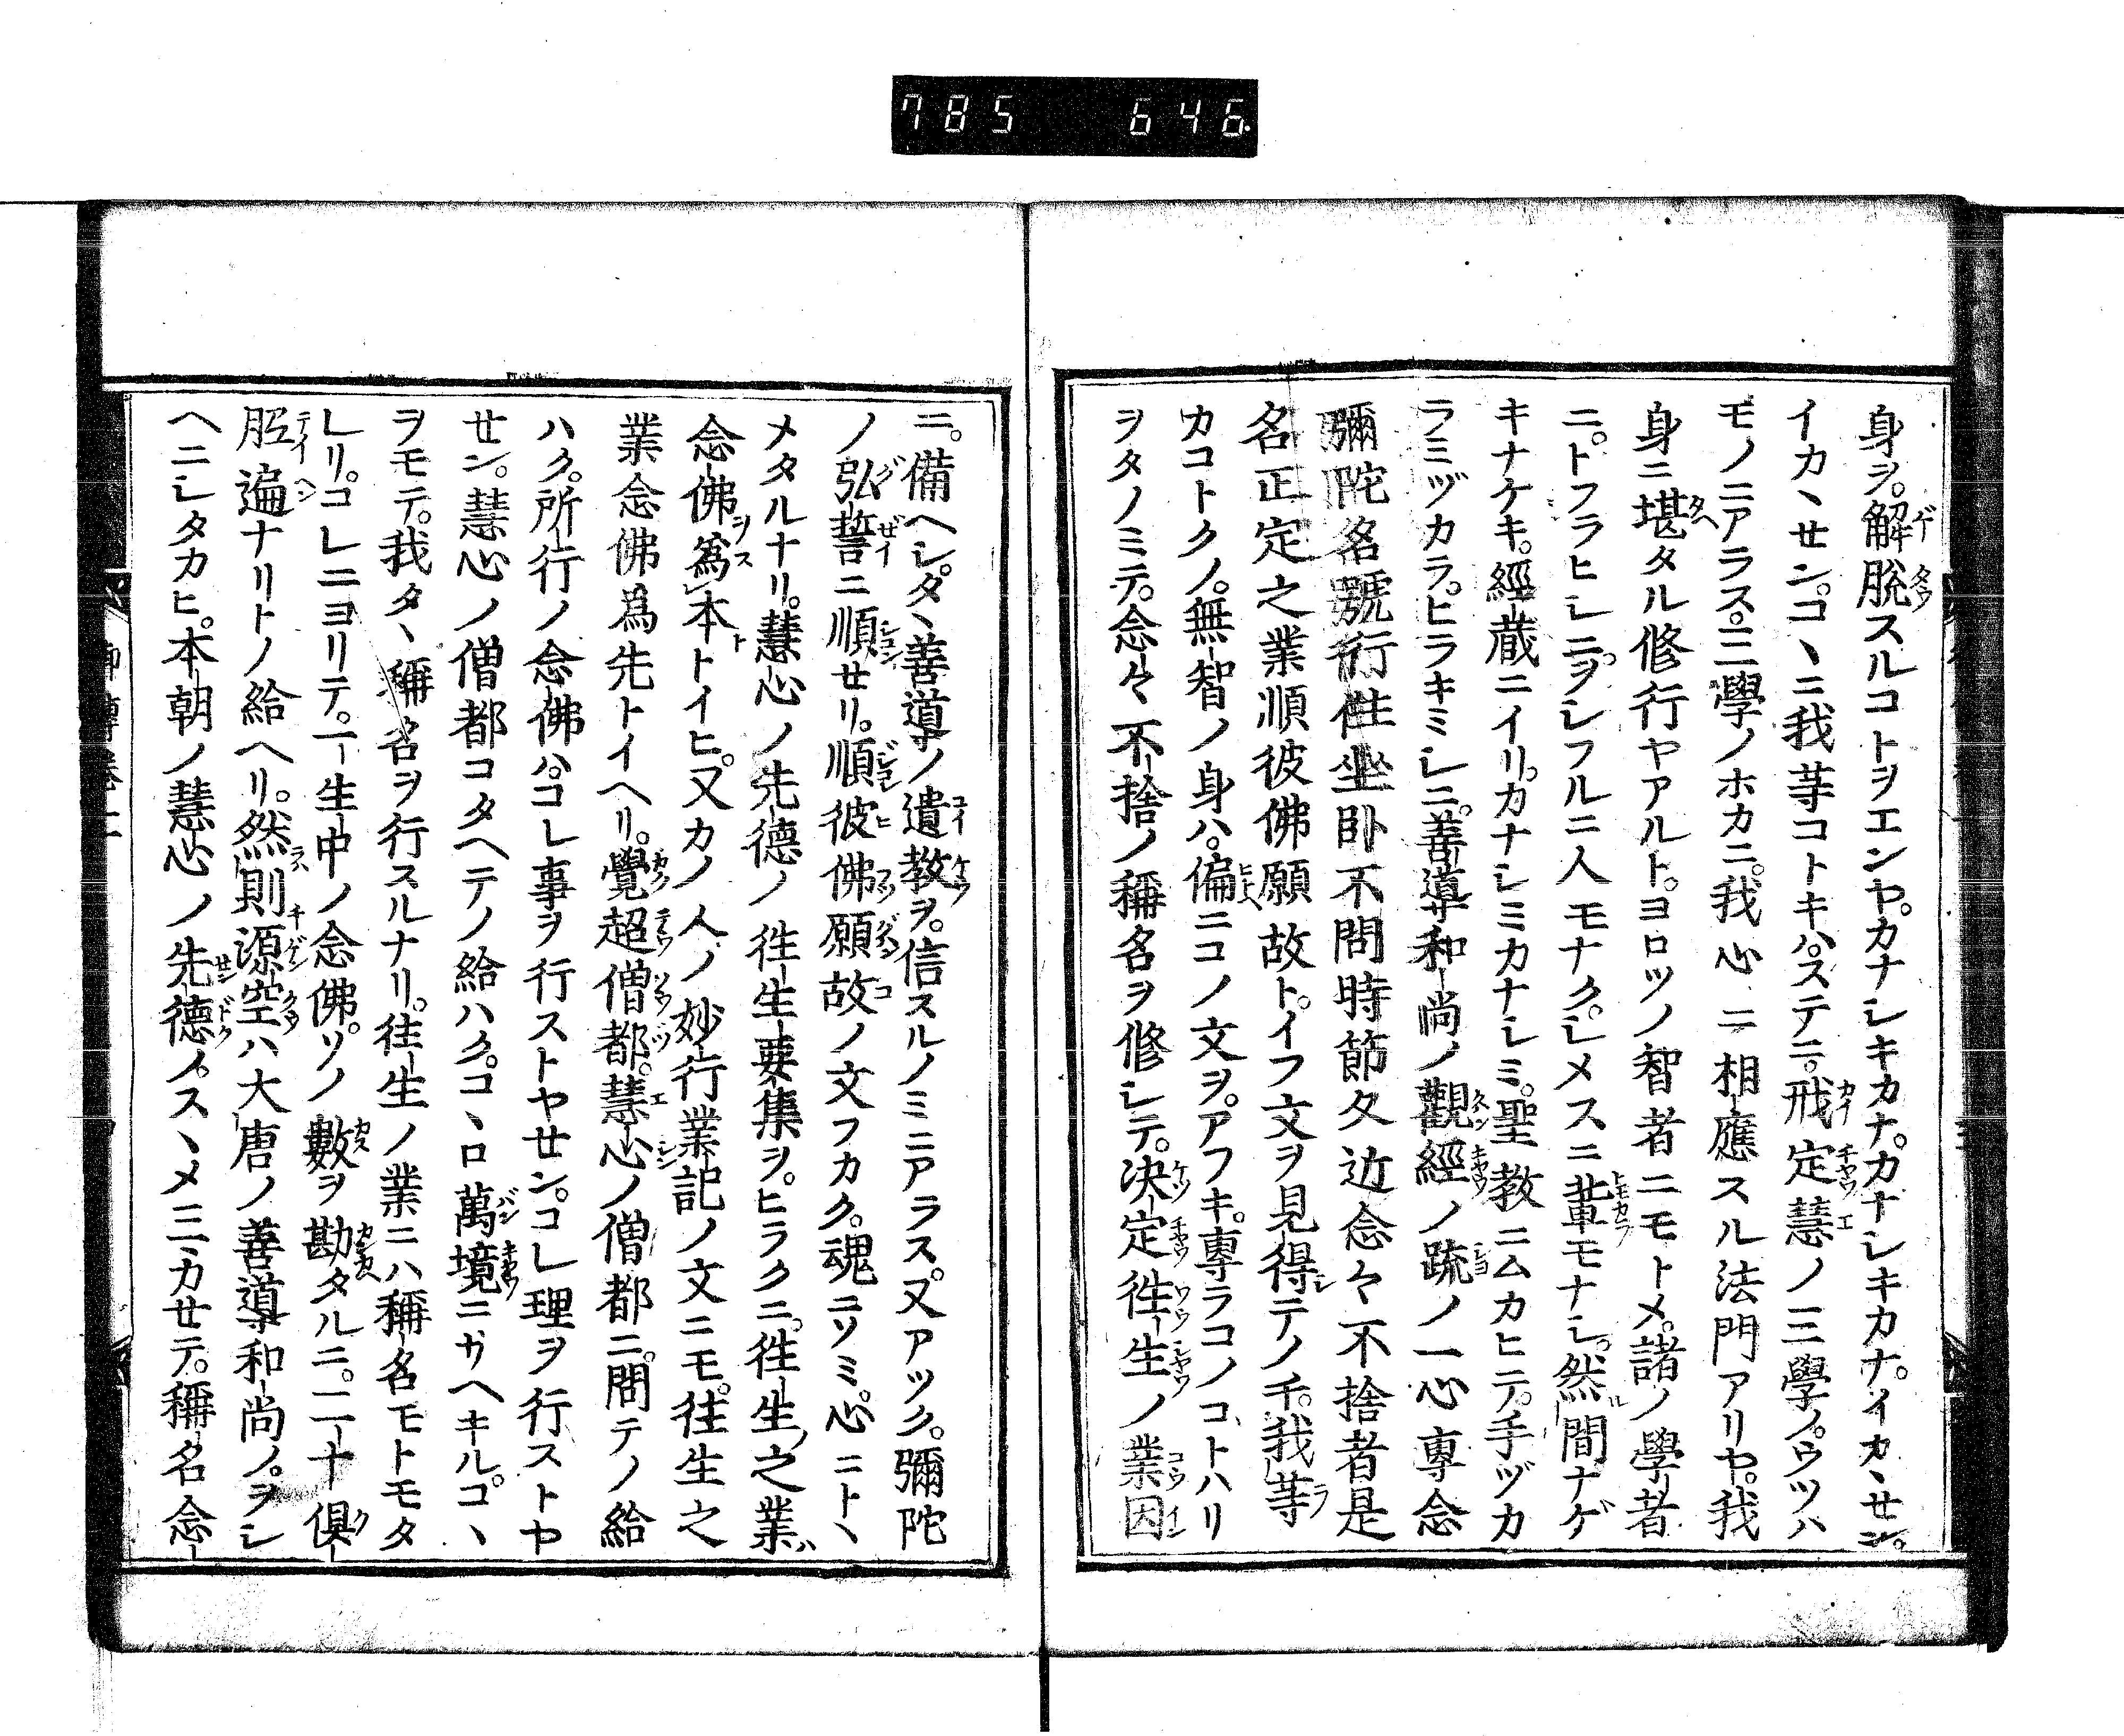 785 646.
身ヲ。解脱スルコトヲエンヤ。カナシキカナ。カナシキカナ。イカヽせン。
イカヽせン。コヽニ我等コトキハ。ステニ。戒定慧ノ三學ノ。ウツハ
モノニアラス。三學ノホカニ。我心ニ相應スル法門アリヤ。我
身ニ堪タル修行ヤアルト。ヨロツノ智者ニモトメ。諸ノ學者
ニ。トフラヒシニ。ヲシフルニ人モナク。シメスニ輩モナシ。然間ナゲ
キナケキ。經藏ニイリ。カナシミカナシミ。聖教ニムカヒテ。手ヅカ
ラミヅカラ。ヒラキミシニ。善導和尚ノ觀經ノ疏ノ一心專念
彌陀名號行住坐臥不問時節久近念々不捨者是
名正定之業順彼佛願故ト。イフ文ヲ見得テノチ。我等
カコトクノ。無智ノ身ハ。偏ニコノ文ヲ。アフキ。專ラコノコトハリ
ヲタノミテ。念々不捨ノ稱名ヲ修シテ。决定徃生ノ業因
ニ。備ヘシ。タヽ善導ノ遺教ヲ。信スルノミニアラス。又アツク。彌陀
ノ弘誓ニ順せリ。順彼佛願故ノ文フカク。魂ニソミ。心ニトヽ
メタルナリ。慧心ノ先德ノ徃生要集ヲ。ヒラクニ。徃生之業
念佛爲本トイヒ。又カノ人ノ妙行業記ノ文ニモ。往生之
業念佛爲先トイヘリ。覺超僧都。慧心ノ僧都ニ。問テノ給
ハク。所行ノ念佛ハ。コレ事ヲ行ストヤせン。コレ理ヲ行ストヤ
せン。慧心ノ僧都コタヘテノ給ハク。コヽロ萬境ニサヘキル。コヽ
ヲモテ。我タヽ稱名ヲ行スルナリ。往生ノ業ニハ稱名モトモタ
レリ。コレニヨリテ。一生中ノ念佛。ソノ數ヲ勘タルニ。二十俱
胝遍ナリトノ給ヘリ。然則源空ハ大唐ノ善導和尚ノ。ヲシ
ヘニシタカヒ。本朝ノ慧心ノ先德ノ。スヽメニカせテ。稱名念